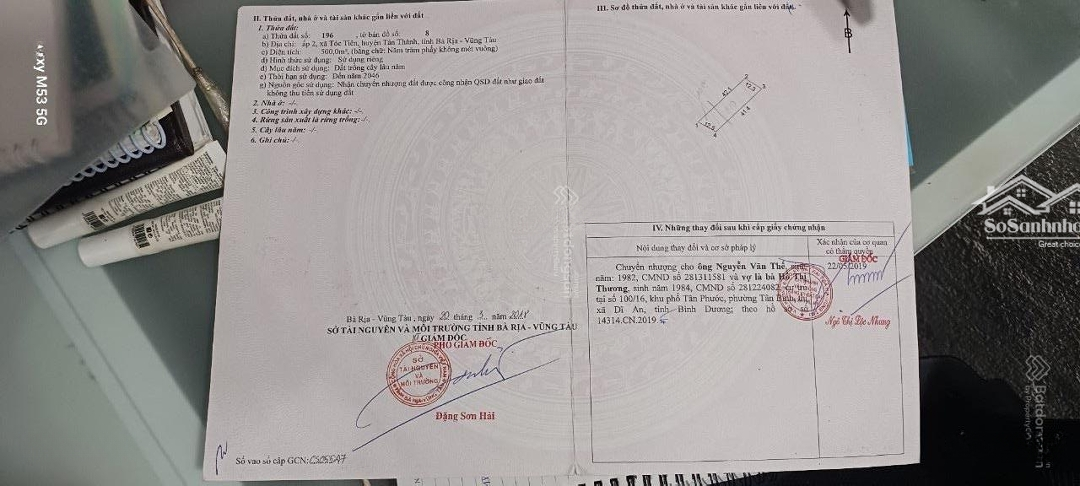 II. Thửa đất, nhà ở và tài sản khác gắn liền với đất
1. Thửa đất:
a) Thửa đất số: 196 , tờ bản đồ số: 8
b) Địa chỉ: ấp 2, xã Tóc Tiên, huyện Tân Thành, tỉnh Bà Rịa - Vũng Tàu
c) Diện tích: 500,0m², (bằng chữ: Năm trăm phẩy không mét vuông)
d) Hình thức sử dụng: Sử dụng riêng
đ) Mục đích sử dụng: Đất trồng cây lâu năm
e) Thời hạn sử dụng: Đến năm 2046
g) Nguồn gốc sử dụng: Nhận chuyển nhượng đất được công nhận QSD đất như giao đất
không thu tiền sử dụng đất
2. Nhà ở: -/-
3. Công trình xây dựng khác: -/-
4. Rừng sản xuất là rừng trồng: -/-
5. Cây lâu năm: -/-
6. Ghi chú: -/-
Bà Rịa - Vũng Tàu, ngày 20 tháng 3 năm
SỞ TÀI NGUYÊN VÀ MÔI TRƯỜNG TỈNH BÀ RỊA - VŨNG TÀU
GIÁM ĐỐC
PHÓ GIÁM ĐỐC
SỞ
TÀI NGUYÊN
VÀ
MÔI TRƯỜNG
Đặng Sơn Hải
Số vào sổ cấp GCN:
III. Sơ đồ thửa đất, nhà ở và tài sản khác gắn liền với đất
B
2
12.3
3
42.1
41.4
1
12.0
4
IV. Những thay đổi sau khi cấp giấy chứng nhận
Nội dung thay đổi và cơ sở pháp lý
Xác nhận của cơ quan
có thẩm quyền
GIÁM ĐỐC
22/05/2019
Chuyển nhượng cho ông Nguyễn Văn Thế, sinh
năm: 1982, CMND số 281311581 và vợ là bà Hồ Thị
Thương, sinh năm 1984, CMND số 281224082, cư trú
tại số 100/16, khu phố Tân Phước, phường Tân Bình, thị
xã Dĩ An, tỉnh Bình Dương; theo hồ sơ số
14314.CN.2019.
Ngô Thị Lộc Nhung
xy M53 5G
SoSanhnha
Great choice
Batdongsan
by PropertyGuru